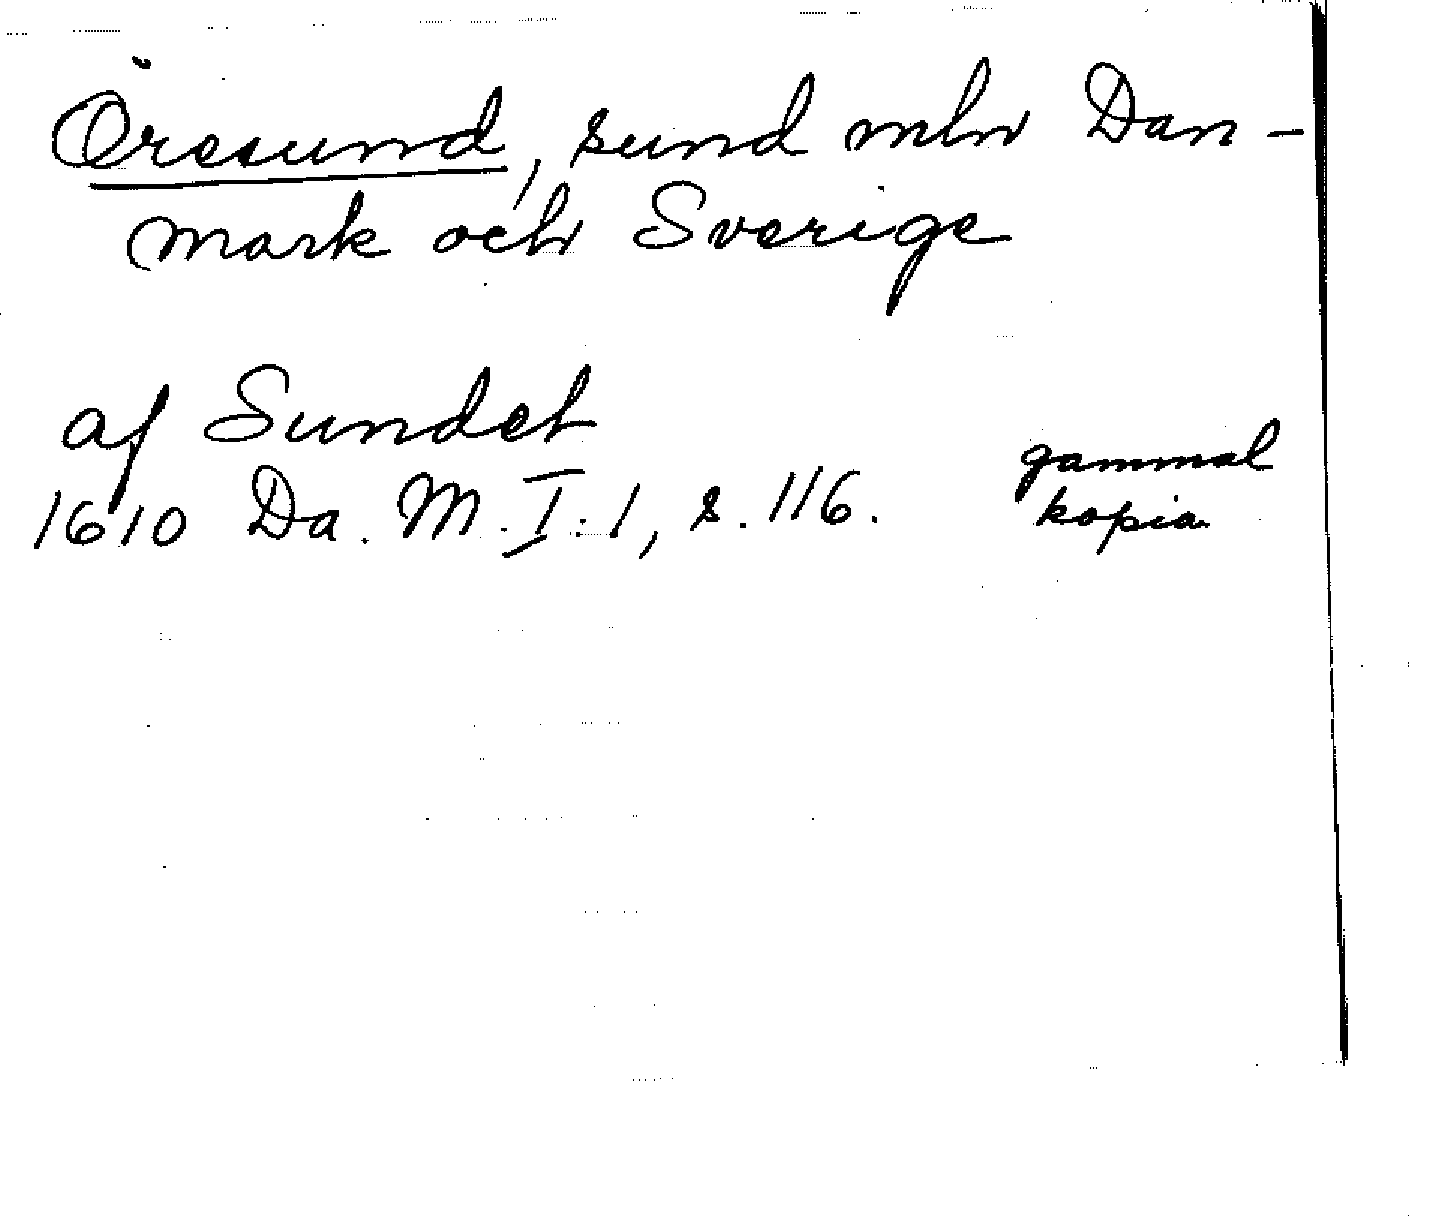 Öresund, sund mln Dan-
mark och Sverige
af Sundet
1610 Da. M. I:1, s. 116.
gammal
kopia